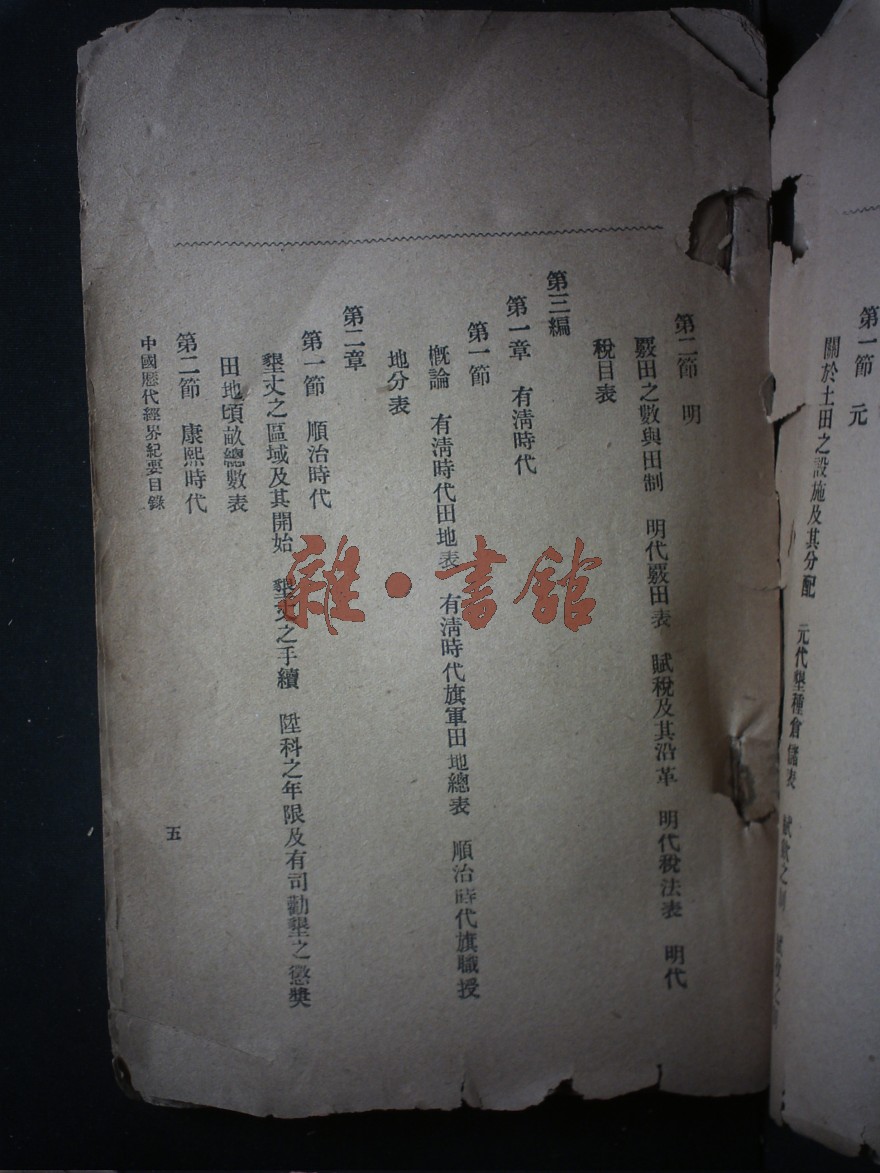 第一節 元
關於土田之設施及其分配 元代墾種倉儲表
第二節 明
覈田之數與田制 明代覈田表 賦稅及其沿革 明代稅法表 明代
稅目表
第三編
第一章 有淸時代
第一節
槪論 有淸時代田地表 有淸時代旗軍田地總表 順治時代旗職授
地分表
第二章
第一節 順治時代
墾丈之區域及其開始 墾丈之手續 陞科之年限及有司勸墾之懲獎
田地頃畝總數表
第二節 康熙時代
中國歷代經界紀要目錄
五
雜·書館